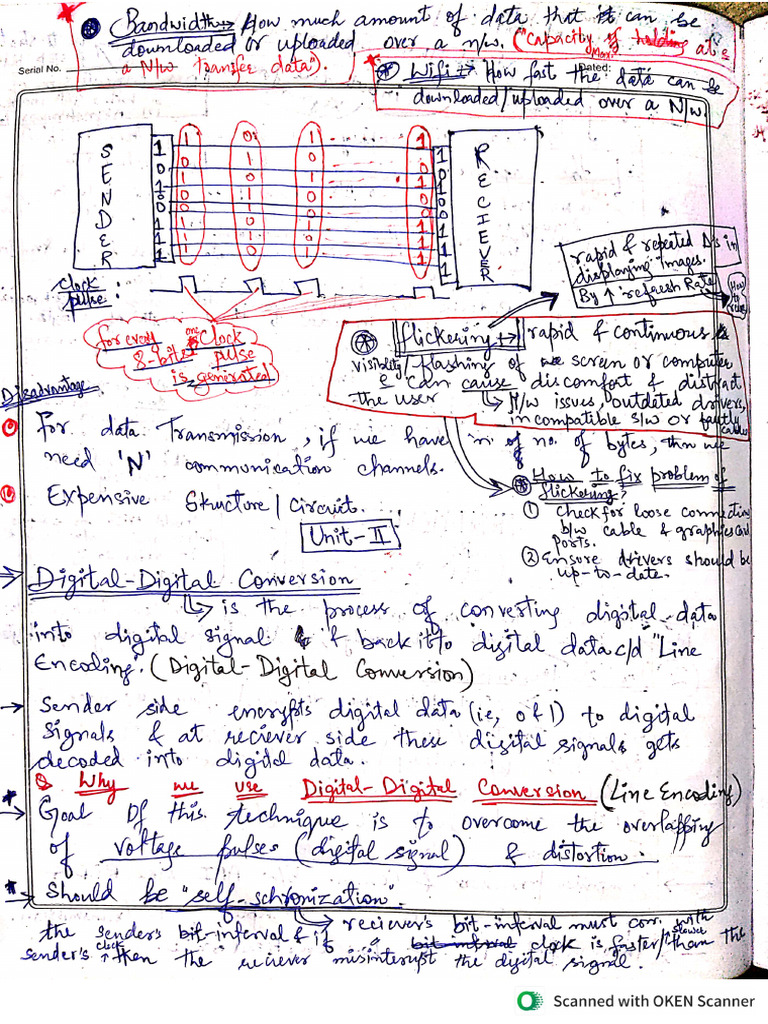 Bandwidth → How much amount of data that it can be
downloaded or uploaded over a n/w. ("Capacity of holding at
a N/w transfer data").
Serial No.
Dated:
Wifi → How fast the data can be
downloaded/uploaded over a N/w.
SENDER
1 0 1 1
RECIEVER
Clock
pulse :
for every one
8-bits Clock
pulse
is generated
rapid & repeated Δs in
displaying images.
By ↑ refresh Rate
How to
Flickering → rapid & continuous
visiblity/flashing of screen or computer
& can cause discomfort & distract
the user
→ H/w issues, outdated drivers,
incompatible s/w or faulty
cables
Disadvantage
For data Transmission, if we have 'n' of no. of bytes, then we
need 'N' communication channels.
Expensive Structure / Circuit.
How to fix problem of
flickering?
① Check for loose connection
b/w cable & graphics card
ports.
② Ensure drivers should be
up-to-date.
Unit-II
→ Digital-Digital Conversion
↳ is the process of converting digital data
into digital signal & back it to digital data c/d "Line
Encoding. (Digital-Digital Conversion)
→ Sender side encrypts digital data (ie, 0 & 1) to digital
signals & at reciever side these digital signals gets
decoded into digital data.
Q Why we use Digital-Digital Conversion (Line Encoding)
→ Goal Of this technique is to overcome the overlapping
of voltage pulses (digital signal) & distortion.
→ Should be "self-schronization".
→ reciever's bit-interval must corr. with
the sender's bit-interval & if bit interval clock is faster/slower than the
sender's clock then the reciever misinterupt the digital signal.
Scanned with OKEN Scanner